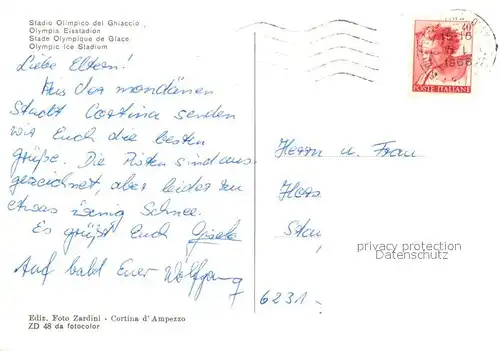 Stadio Olimpico del Ghiaccio
Olympia Eisstadion
Stade Olympique de Glace
Olympic Ice Stadium
Liebe Eltern!
Aus der mondänen
Stadt Cortina senden
wir Euch die besten
Grüße. Die Pisten sind aus
gezeichnet, aber leider
etwas wenig Schnee.
Es grüßt Euch Gisela
Auf bald Euer Wolfgang
Ediz. Foto Zardini - Cortina d'Ampezzo
ZD 48 da fotocolor
1968
POSTE ITALIANE
Herrn u. Frau
privacy protection
Datenschutz
6231-